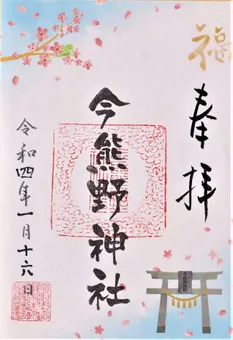 福
奉拝
今熊野神社
令和四年一月十六日